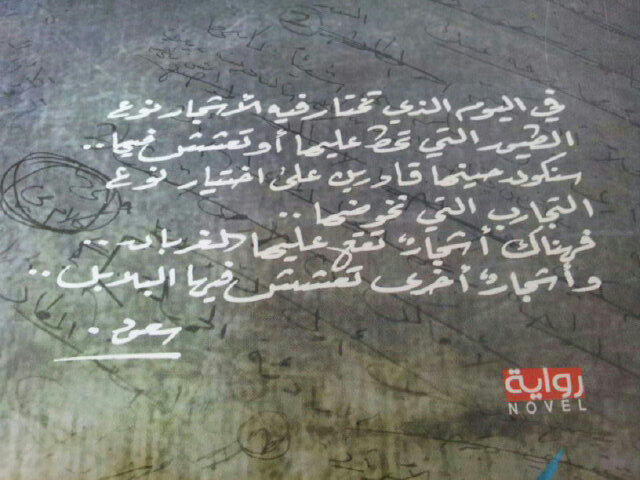 في اليوم الذي تختار فيه الأشجار نوع
الطيور التي تحط عليها أو تعشش فيها..
سنكون حينها قادرين على اختيار نوع
التجارب التي نخوضها..
فهناك أشجارٌ تقع عليها الغربان..
وأشجارٌ أخرى تعشش فيها البلابل..
سعود.
رواية
NOVEL